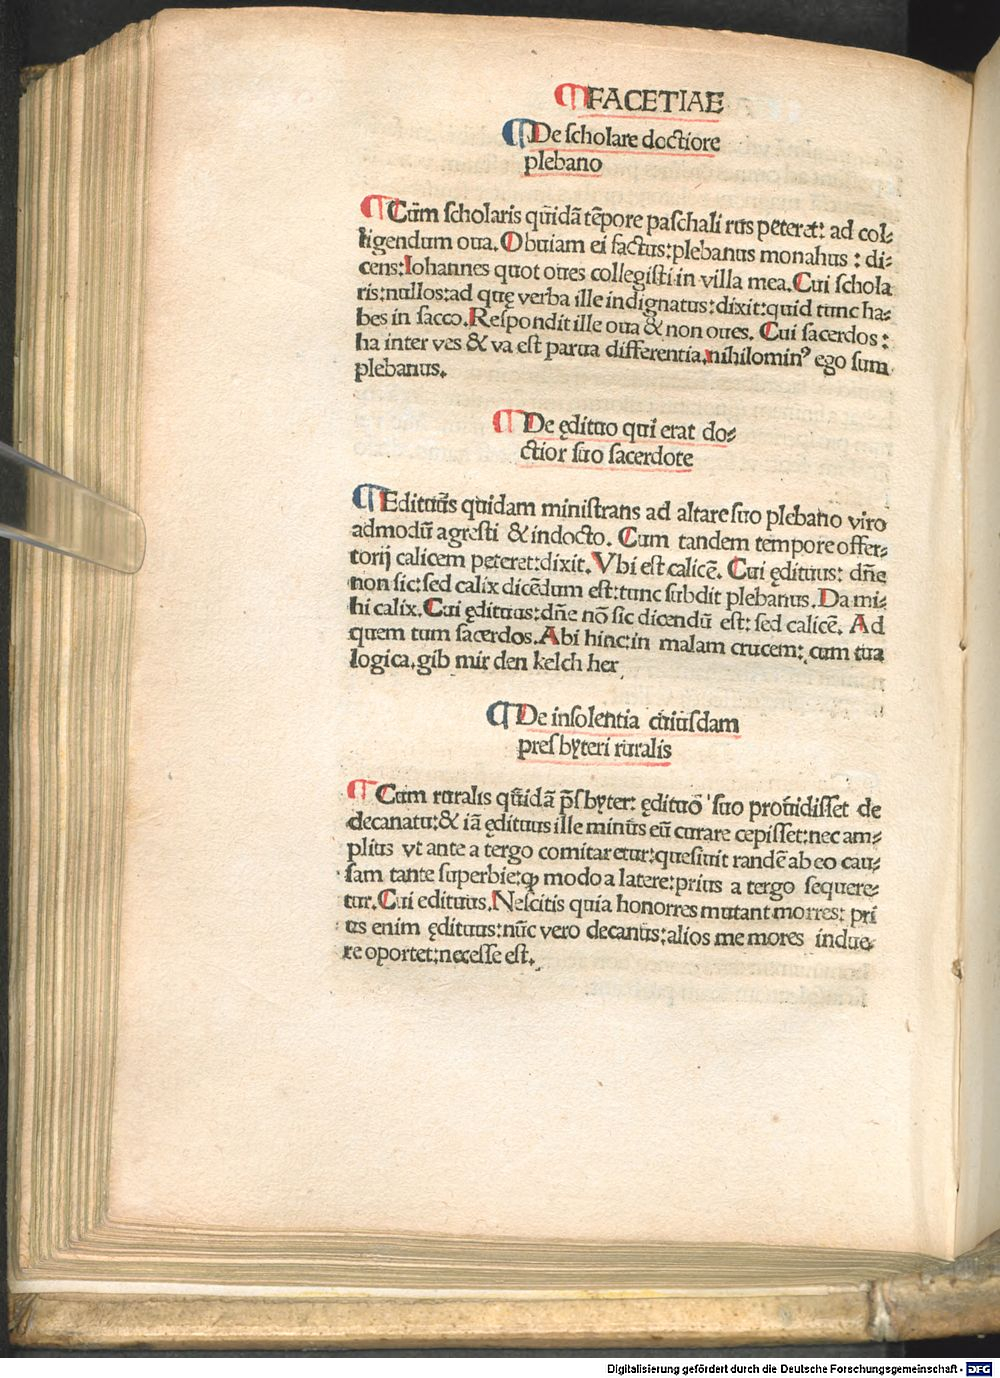 FACETIAE
De scholare doctiore
plebano
Cũm scholaris quidã tẽpore paschali rus peteret: ad col⸗
ligendum oua. Obuiam ei factus: plebanus monahus: di⸗
cens: Iohannes quot oues collegisti in villa mea. Cui schola
ris: nullos: ad quę verba ille indignatus: dixit: quid tunc ha⸗
bes in sacco. Respondit ille oua & non oues. Cui sacerdos:
ha inter ves & va est parua differentia. nihilominꝰ ego sum
plebanus.
De ędituo qui erat do⸗
ctior suo sacerdote
Edituus quidam ministrans ad altare suo plebano viro
admodũ agresti & indocto. Cum tandem tempore offer⸗
torij calicem peteret: dixit. Vbi est calicẽ. Cui ędituus: dñe
non sic: sed calix dicẽdum est: tunc subdit plebanus. Da mi⸗
hi calix. Cui ędituus: dñe nõ sic dicendũ est: sed calicẽ. Ad
quem tum sacerdos. Abi hinc: in malam crucem: cum tua
logica. gib mir den kelch her
De insolentia cuiusdam
presbyteri ruralis
Cum ruralis quidã p̃sbyter: ędituõ suo prouidisset de
decanatu: & iã ędituus ille minus eũ curare cepisset: nec am⸗
plius vt ante a tergo comitaretur: quesiuit randẽ ab eo cau⸗
sam tante superbie: ꝙ modo a latere: prius a tergo sequere⸗
tur. Cui edituus. Nescitis quia honorres mutant morres: pri
us enim ędituus: nũc vero decanus: alios me mores indue⸗
re oportet: necesse est.
Digitalisierung gefördert durch die Deutsche Forschungsgemeinschaft - DFG